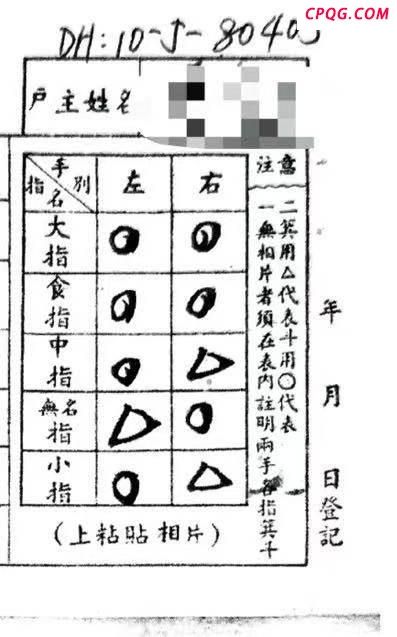 CPQG.COM
DH:10-5-8040
戶主姓名
手別
指名
左
右
大指
食指
中指
無名指
小指
(上粘貼相片)
注意
一無相片者須在表內註明兩手各指箕斗
二箕用△代表斗用○代表
年月日登記